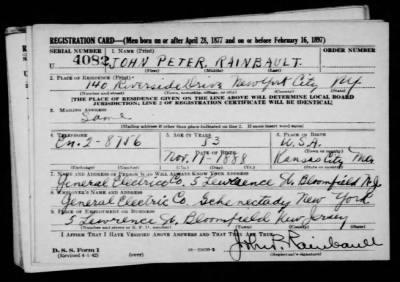 REGISTRATION CARD—(Men born on or after April 28, 1877 and on or before February 16, 1897)
SERIAL NUMBER 1. NAME (Print) ORDER NUMBER
U 4082 JOHN PETER RAINBAULT
(First) (Middle) (Last)
2. PLACE OF RESIDENCE (Print)
140 Riverside Drive New York City N.Y.
(Number and street) (Town, township, village, or city) (County) (State)
[THE PLACE OF RESIDENCE GIVEN ON THE LINE ABOVE WILL DETERMINE LOCAL BOARD
JURISDICTION; LINE 2 OF REGISTRATION CERTIFICATE WILL BE IDENTICAL]
3. MAILING ADDRESS
Same
[Mailing address if other than place indicated on line 2. If same insert word same]
4. TELEPHONE 5. AGE IN YEARS 6. PLACE OF BIRTH
En. 2-8956 53 U.S.A.
DATE OF BIRTH
Nov. 17 - 1888 Kansas City Mo.
(Exchange) (Number) (Mo.) (Day) (Yr.) (State or country)
7. NAME AND ADDRESS OF PERSON WHO WILL ALWAYS KNOW YOUR ADDRESS
General Electric Co. 5 Lawrence St. Bloomfield N.J.
8. EMPLOYER'S NAME AND ADDRESS
General Electric Co. Schenectady New York
9. PLACE OF EMPLOYMENT OR BUSINESS
5 Lawrence St. Bloomfield New Jersey
(Number and street or R. F. D. number) (Town) (County) (State)
I AFFIRM THAT I HAVE VERIFIED ABOVE ANSWERS AND THAT THEY ARE TRUE.
D. S. S. Form 1
(Revised 4-1-42) (over)
John P. Rainbault
(Registrant's signature)